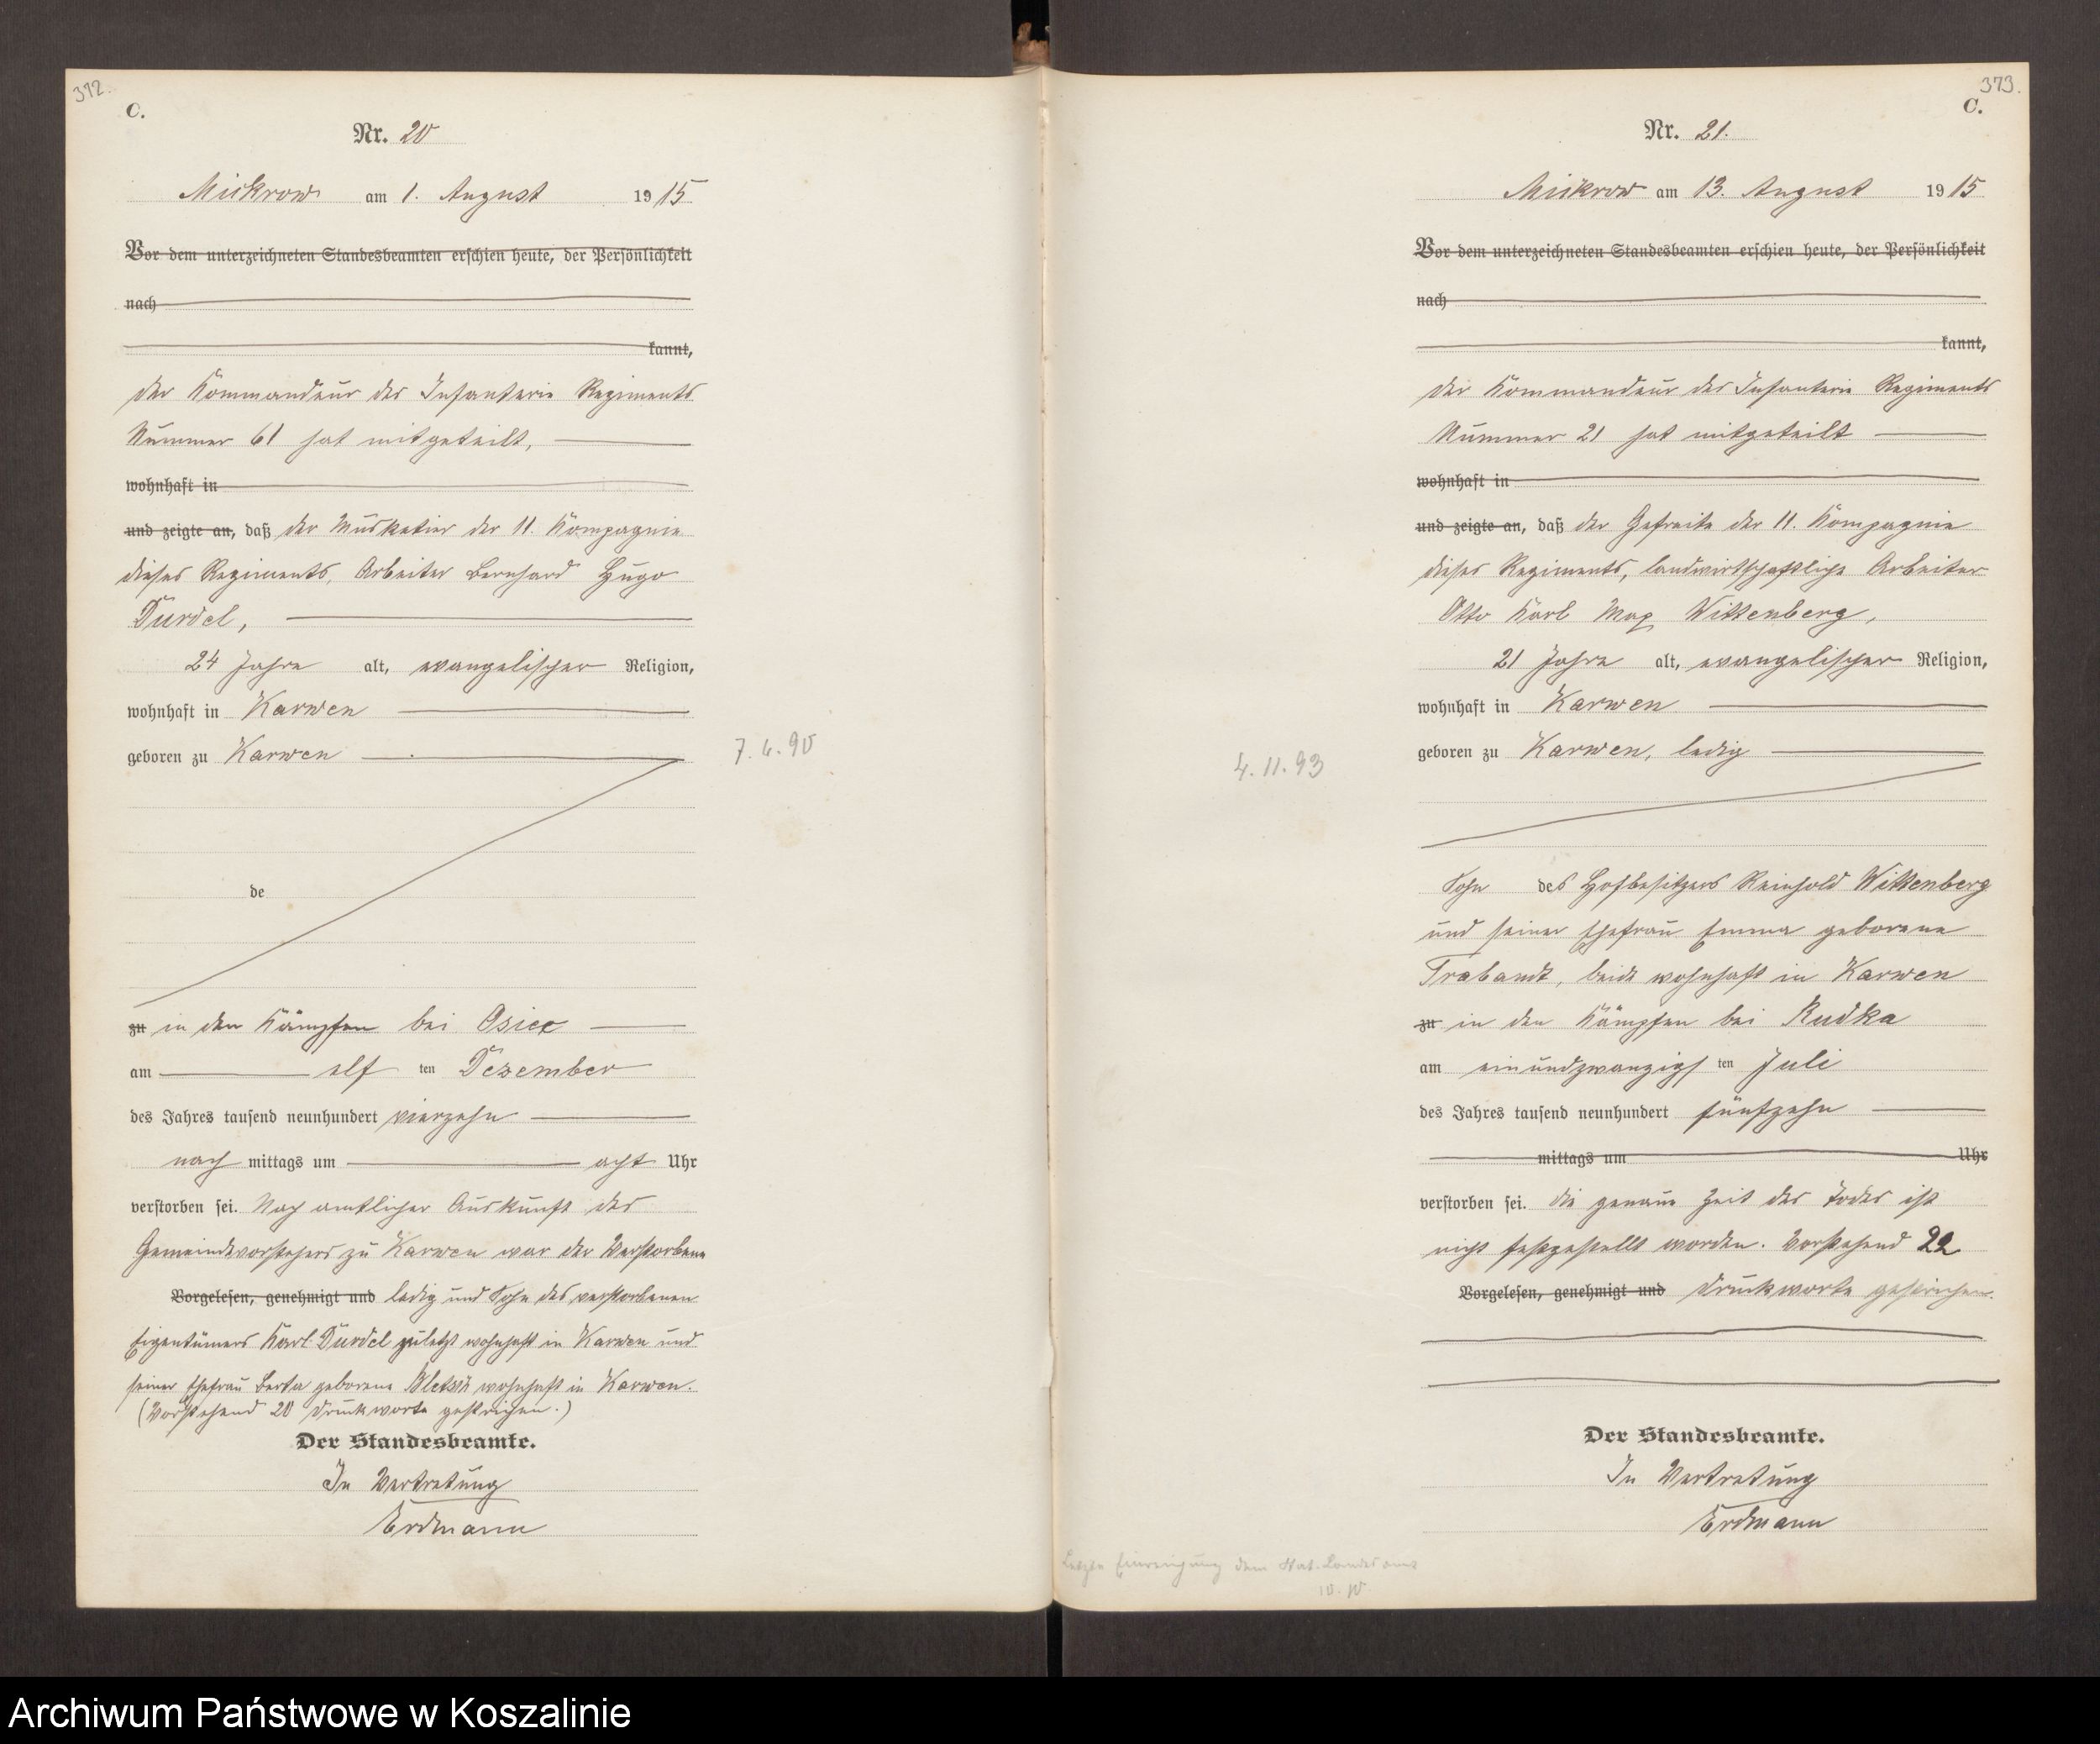 372.
C.
Nr. 20
Mickrow am 1. August 1915
Vor dem unterzeichneten Standesbeamten erschien heute, der Persönlichkeit
nach
kannt,
Der Kommandeur des Infanterie Regiments
Nummer 61 hat mitgeteilt,
wohnhaft in
und zeigte an, daß der Musketier der 11. Kompagnie
dieses Regiments, Arbeiter Bernhard Hugo
Durdel,
24 Jahre alt, evangelischer Religion,
wohnhaft in Karwen
geboren zu Karwen
7.6.90
de
zu in den Kämpfen bei Osiec
am elf ten Dezember
des Jahres tausend neunhundert vierzehn
nach mittags um acht Uhr
verstorben sei. Nach amtlicher Auskunft des
Gemeindevorstehers zu Karwen war der Verstorbene
Vorgelesen, genehmigt und ledig und Sohn des verstorbenen
Eigentümers Karl Durdel zuletzt wohnhaft in Karwen und
seiner Ehefrau Berta geborene wohnhaft in Karwen.
(Vorstehend 20 Druckworte gestrichen.)
Der Standesbeamte.
In Vertretung
Erdmann
373.
C.
Nr. 21.
Mickrow am 13. August 1915
Vor dem unterzeichneten Standesbeamten erschien heute, der Persönlichkeit
nach
kannt,
Der Kommandeur des Infanterie Regiments
Nummer 21 hat mitgeteilt
wohnhaft in
und zeigte an, daß der Gefreite der 11. Kompagnie
dieses Regiments, landwirtschaftliche Arbeiter
Otto Karl Max Wittenberg,
21 Jahre alt, evangelischer Religion,
wohnhaft in Karwen
geboren zu Karwen, ledig
4.11.93
Sohn des Hofbesitzers Reinhold Wittenberg
und seiner Ehefrau Emma geborene
Trabandt, beide wohnhaft in Karwen
zu in den Kämpfen bei Rudka
am einundzwanzigs ten Juli
des Jahres tausend neunhundert fünfzehn
mittags um Uhr
verstorben sei. Die genaue Zeit des Todes ist
nicht festgestellt worden. Vorstehend 22
Vorgelesen, genehmigt und Druckworte gestrichen.
Der Standesbeamte.
In Vertretung
Erdmann
Archiwum Państwowe w Koszalinie